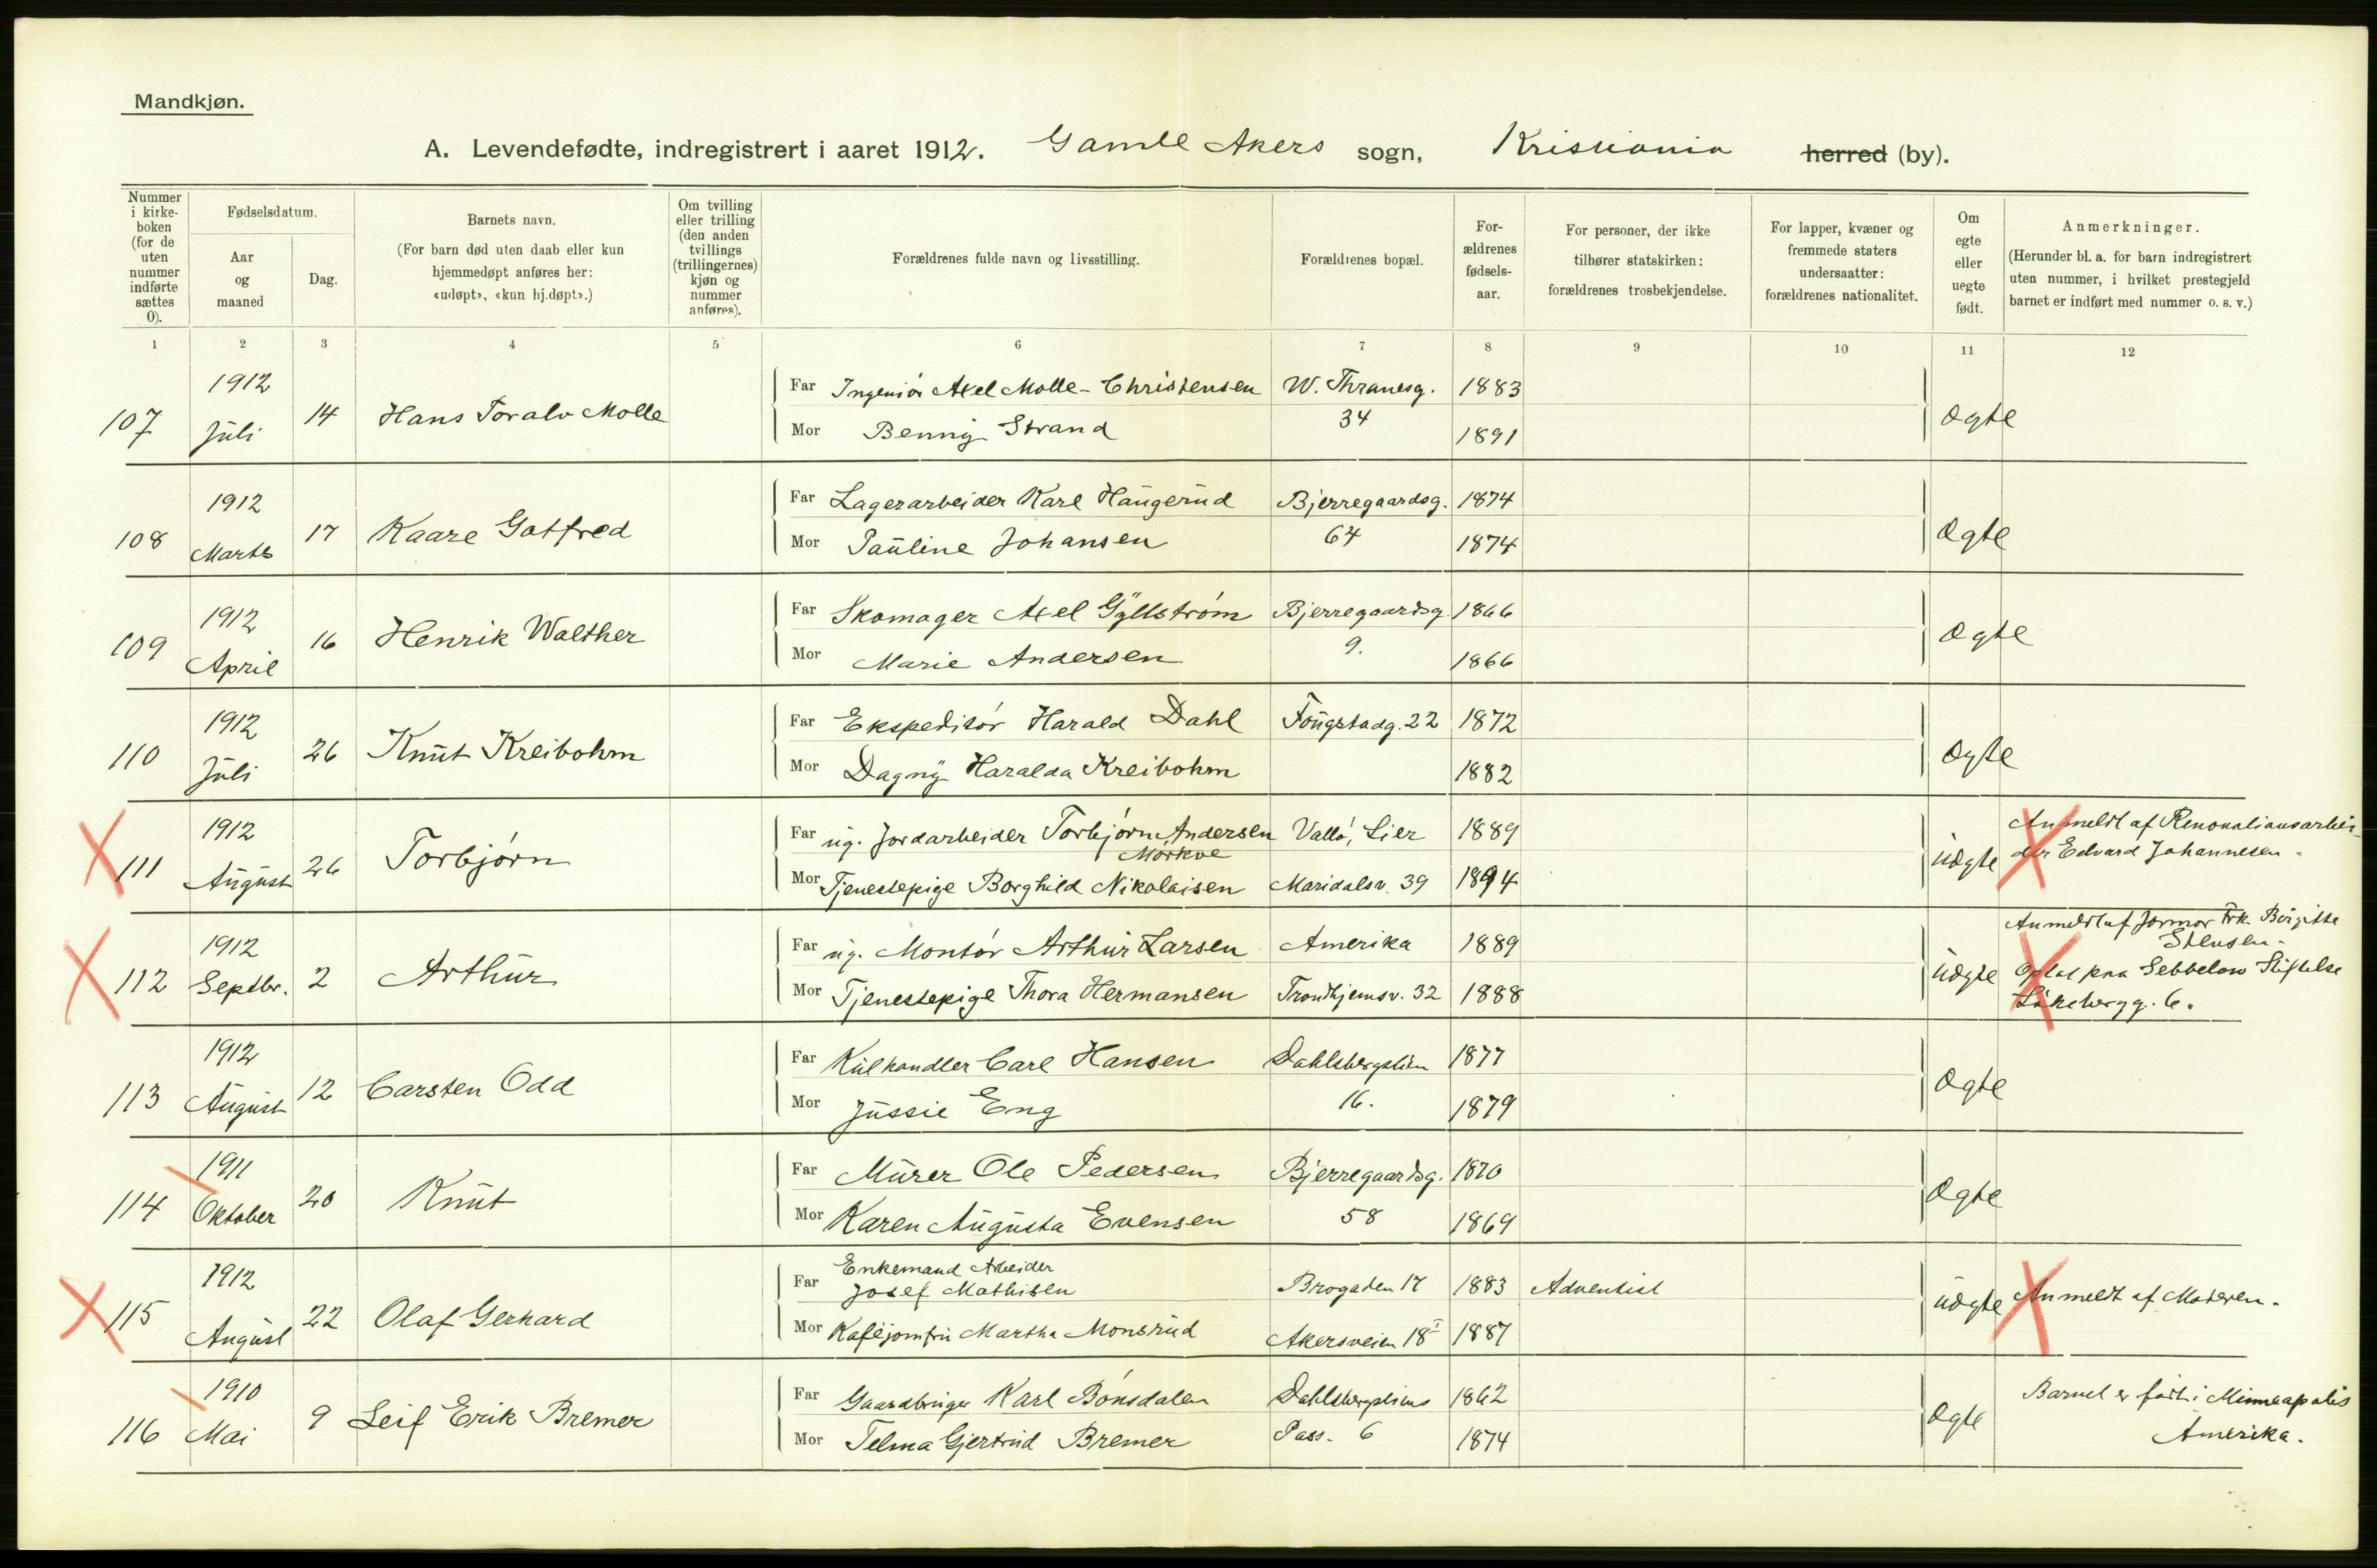 Mandkjøn.
A. Levendefødte, indregistrert i aaret 1912. Gamle Akers sogn, Kristiania herred (by).
Nummer i kirke-boken (for de uten nummer indførte sættes 0).
Fødselsdatum.
Aar og maaned
Dag.
Barnets navn.
(For barn død uten daab eller kun hjemmedøpt anføres her: «udøpt», «kun hj.døpt».)
Om tvilling eller trilling (den anden tvillings (trillingernes) kjøn og nummer anføres).
Forældrenes fulde navn og livsstilling.
Forældrenes bopæl.
For-ældrenes fødsels-aar.
For personer, der ikke tilhører statskirken: forældrenes trosbekjendelse.
For lapper, kvæner og fremmede staters undersaatter: forældrenes nationalitet.
Om egte eller uegte født.
Anmerkninger.
(Herunder bl. a. for barn indregistrert uten nummer, i hvilket prestegjeld barnet er indført med nummer o. s. v.)
1 2 3 4 5 6 7 8 9 10 11 12
107 1912 Juli 14 Hans Toralv Molle
Far Ingeniør Axel Molle-Christensen W. Thranesg. 1883
Mor Benny Strand 34 1891 Ægte
108 1912 Marts 17 Kaare Gotfred
Far Lagerarbeider Karl Haugerud Bjerregaardsg. 1874
Mor Pauline Johansen 64 1874 Ægte
109 1912 April 16 Henrik Walther
Far Skomager Axel Gyllstrøm Bjerregaardsg. 1866
Mor Marie Andersen 9. 1866 Ægte
110 1912 Juli 26 Knut Kreibohm
Far Ekspeditør Harald Dahl Fougstadg. 22 1872
Mor Dagny Haralda Kreibohm 1882 Ægte
111 1912 August 26 Torbjørn
Far ug. Jordarbeider Torbjørn Andersen Mørkve Vallø, Lier 1889
Mor Tjenestepige Borghild Nikolaisen Maridalsv. 39 1894 uægte
Anmeldt af Renovationsarbei-
der Edvard Johannesen.
112 1912 Septbr. 2 Arthur
Far ug. Montør Arthur Larsen Amerika 1889
Mor Tjenestepige Thora Hermansen Trondhjemsv. 32 1888 uægte
Anmeldt af Jormor Frk. Birgitte
Stensen.
Optat paa Sebbelows Stiftelse
Lakkebergg. 6.
113 1912 August 12 Carsten Odd
Far Kulhandler Carl Hansen Dahlsbergstien 1877
Mor Jussie Eng 16. 1879 Ægte
114 1911 Oktober 20 Knut
Far Murer Ole Pedersen Bjerregaardsg. 1870
Mor Karen Augusta Evensen 58 1869 Ægte
115 1912 August 22 Olaf Gerhard
Far Enkemand Arbeider
Josef Mathisen Brogaten 17 1883 Adventist
Mor Kaféjomfru Martha Monsrud Akersveien 18 I 1887 uægte
Anmeldt af Moderen.
116 1910 Mai 9 Leif Erik Bremer
Far Gaardbruger Karl Bonsdalen Dahlsbergstiens 1862
Mor Telma Gjertrud Bremer Pass. 6 1874 Ægte
Barnet er født i Minneapolis
Amerika.